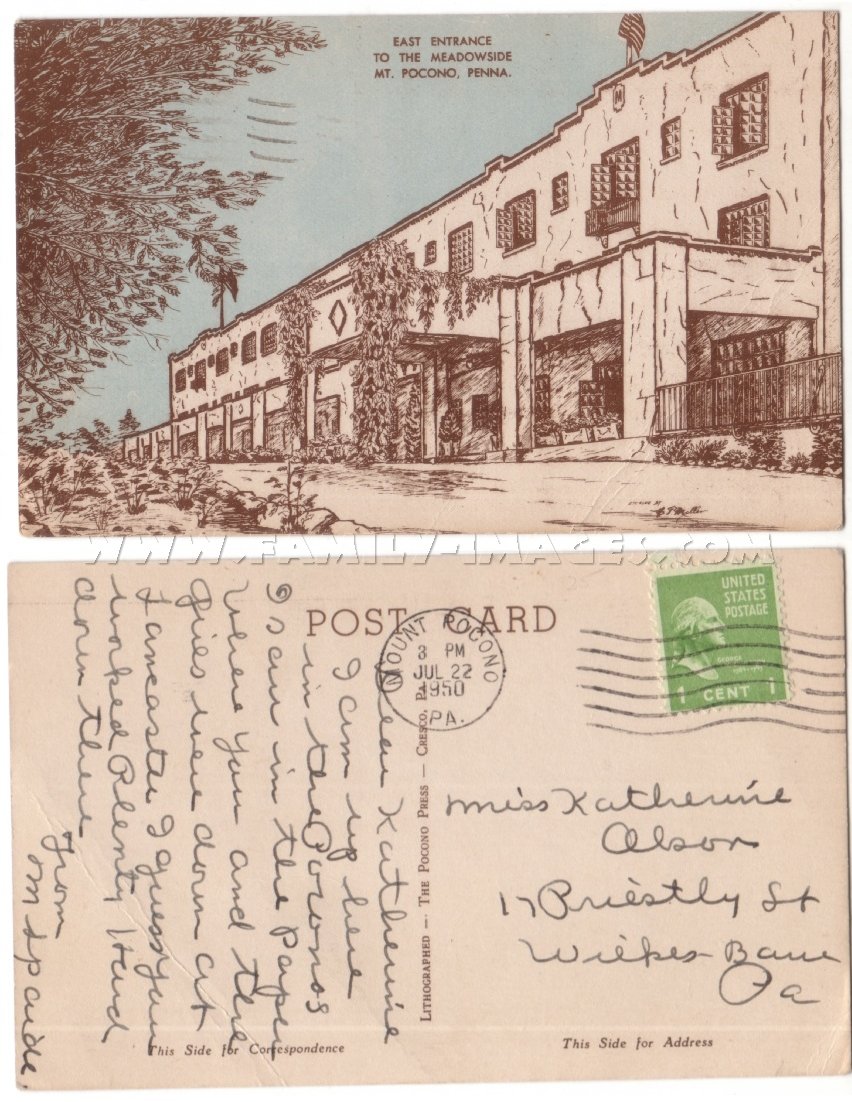 EAST ENTRANCE
TO THE MEADOWSIDE
MT. POCONO, PENNA.
M
WWW.FAMILY-IMAGES.COM
POST CARD
MOUNT POCONO
3 PM
JUL 22
1950
PA.
UNITED
STATES
POSTAGE
GEORGE
1 CENT 1
Dear Katherine
I am up here
in the Poconos
I saw in the Paper
Where you and the
Girls were down at
Lancaster I guess you
worked Plenty Hard
down there
From
Lithographed — The Pocono Press — Cresco, Pa.
Miss Katherine
17 Priestly St
Wilkes Barre
Pa
This Side for Correspondence
This Side for Address